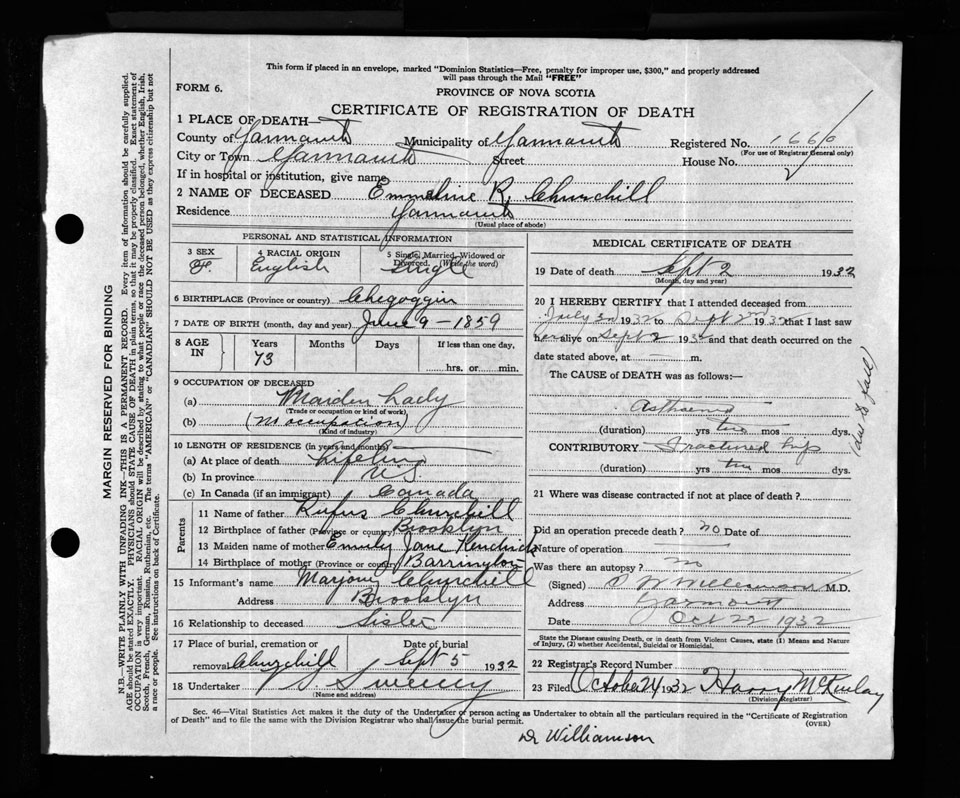 This form if placed in an envelope, marked "Dominion Statistics—Free, penalty for improper use, $300," and properly addressed
will pass through the Mail "FREE"
FORM 6.
PROVINCE OF NOVA SCOTIA
CERTIFICATE OF REGISTRATION OF DEATH
1 PLACE OF DEATH—
County of Yarmouth Municipality of Yarmouth Registered No. 1666
(For use of Registrar General only)
City or Town Yarmouth Street House No.
If in hospital or institution, give name
2 NAME OF DECEASED Emmeline R. Churchill
Residence Yarmouth
(Usual place of abode)
PERSONAL AND STATISTICAL INFORMATION
3 SEX F. 4 RACIAL ORIGIN English 5 Single, Married, Widowed or Divorced. (Write the word) Single
6 BIRTHPLACE (Province or country) Chegoggin
7 DATE OF BIRTH (month, day and year) June 9 - 1859
8 AGE IN Years 73 Months Days If less than one day,
hrs. or min.
9 OCCUPATION OF DECEASED
(a) Maiden Lady
(Trade or occupation or kind of work)
(b) (no occupation)
(Kind of industry)
10 LENGTH OF RESIDENCE (in years and months)
(a) At place of death Lifetime
(b) In province
(c) In Canada (if an immigrant) Canada
Parents
11 Name of father Rufus Churchill
12 Birthplace of father (Province or country) Brooklyn
13 Maiden name of mother Emily Jane Kendrick
14 Birthplace of mother (Province or country) Barrington
15 Informant's name Marjory Churchill
Address Brooklyn
16 Relationship to deceased Sister
17 Place of burial, cremation or Date of burial
removal Churchill Sept 5 1932
18 Undertaker Sweeny
(Name and address)
MEDICAL CERTIFICATE OF DEATH
19 Date of death Sept 2 1932
(Month, day and year)
20 I HEREBY CERTIFY that I attended deceased from
July 30 1932 to Sept 2nd 1932 that I last saw
her alive on Sept 2 1932 and that death occurred on the
date stated above, at — m.
The CAUSE of DEATH was as follows:—
(duration) yrs mos dys.
CONTRIBUTORY Fractured hip
(duration) yrs mos dys.
(due to fall)
21 Where was disease contracted if not at place of death?
Did an operation precede death? no Date of
Nature of operation
Was there an autopsy? no
(Signed) Williamson M.D.
Address Yarmouth
Date Oct 22 1932
State the Disease causing Death, or in death from Violent Causes, state (1) Means and Nature
of Injury, (2) whether Accidental, Suicidal or Homicidal.
22 Registrar's Record Number
23 Filed October 24 1932 Harry McKinlay
(Division Registrar)
Sec. 46—Vital Statistics Act makes it the duty of the Undertaker or person acting as Undertaker to obtain all the particulars required in the "Certificate of Registration
of Death" and to file the same with the Division Registrar who shall issue the burial permit.
(OVER)
Dr Williamson
MARGIN RESERVED FOR BINDING
N.B.—WRITE PLAINLY WITH UNFADING INK—THIS IS A PERMANENT RECORD. Every item of information should be carefully supplied.
AGE should be stated EXACTLY. PHYSICIANS should STATE CAUSE OF DEATH in plain terms, so that it may be properly classified. Exact statement of
OCCUPATION is very important. RACIAL ORIGIN will be described by stating to what people or race the deceased person belonged, whether English, Irish,
Scotch, French, German, Russian, Ruthenian, etc. The terms "AMERICAN" or "CANADIAN" SHOULD NOT BE USED as they express citizenship but not
a race or people. See instructions on back of Certificate.